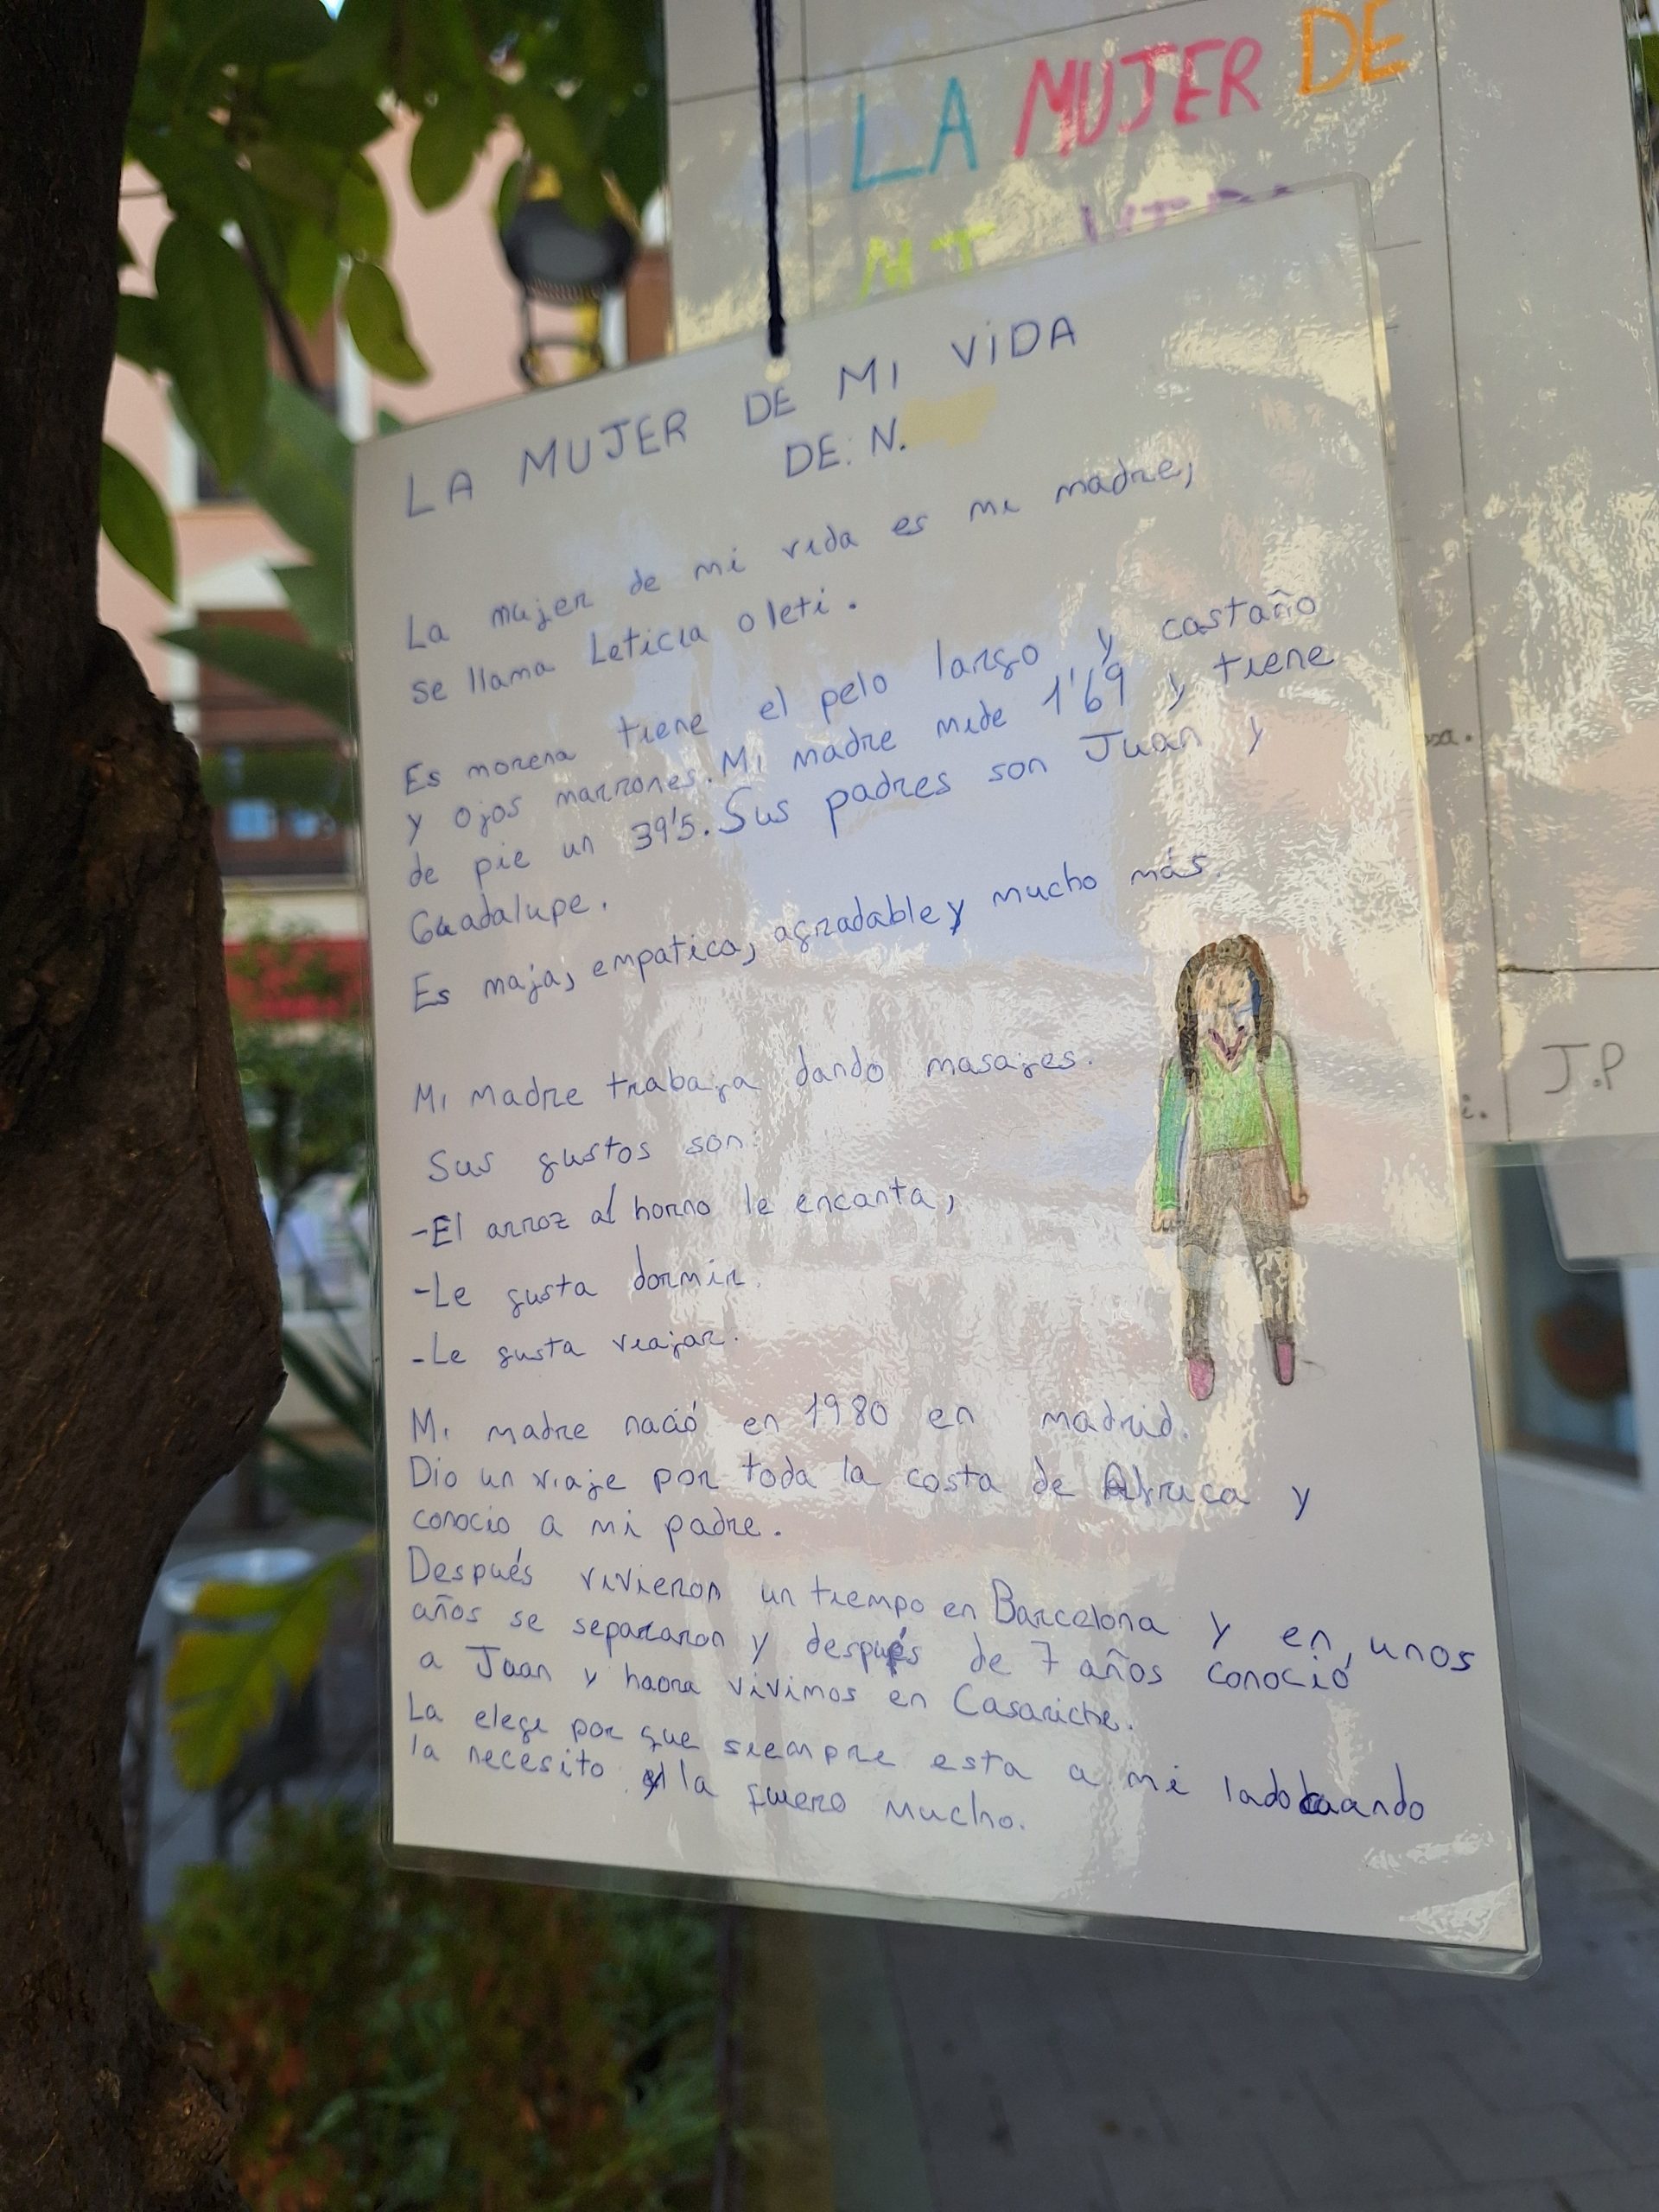 LA MUJER DE
MI
LA MUJER DE MI VIDA
DE: N.
La mujer de mi vida es mi madre,
se llama Leticia o leti.
Es morena tiene el pelo largo y castaño
y ojos marrones. Mi madre mide 1'69 y tiene
de pie un 39'5. Sus padres son Juan y
Guadalupe.
Es maja, empatica, agradable y mucho más.
Mi madre trabaja dando masajes.
Sus gustos son:
-El arroz al horno le encanta,
-Le gusta dormir.
-Le gusta viajar.
Mi madre nació en 1980 en madrid.
Dio un viaje por toda la costa de Africa y
conocio a mi padre.
Después vivieron un tiempo en Barcelona y en unos
años se separaron y después de 7 años conoció
a Juan y haora vivimos en Casariche.
La elegi por que siempre esta a mi lado cuando
la necesito y la quiero mucho.
J.P